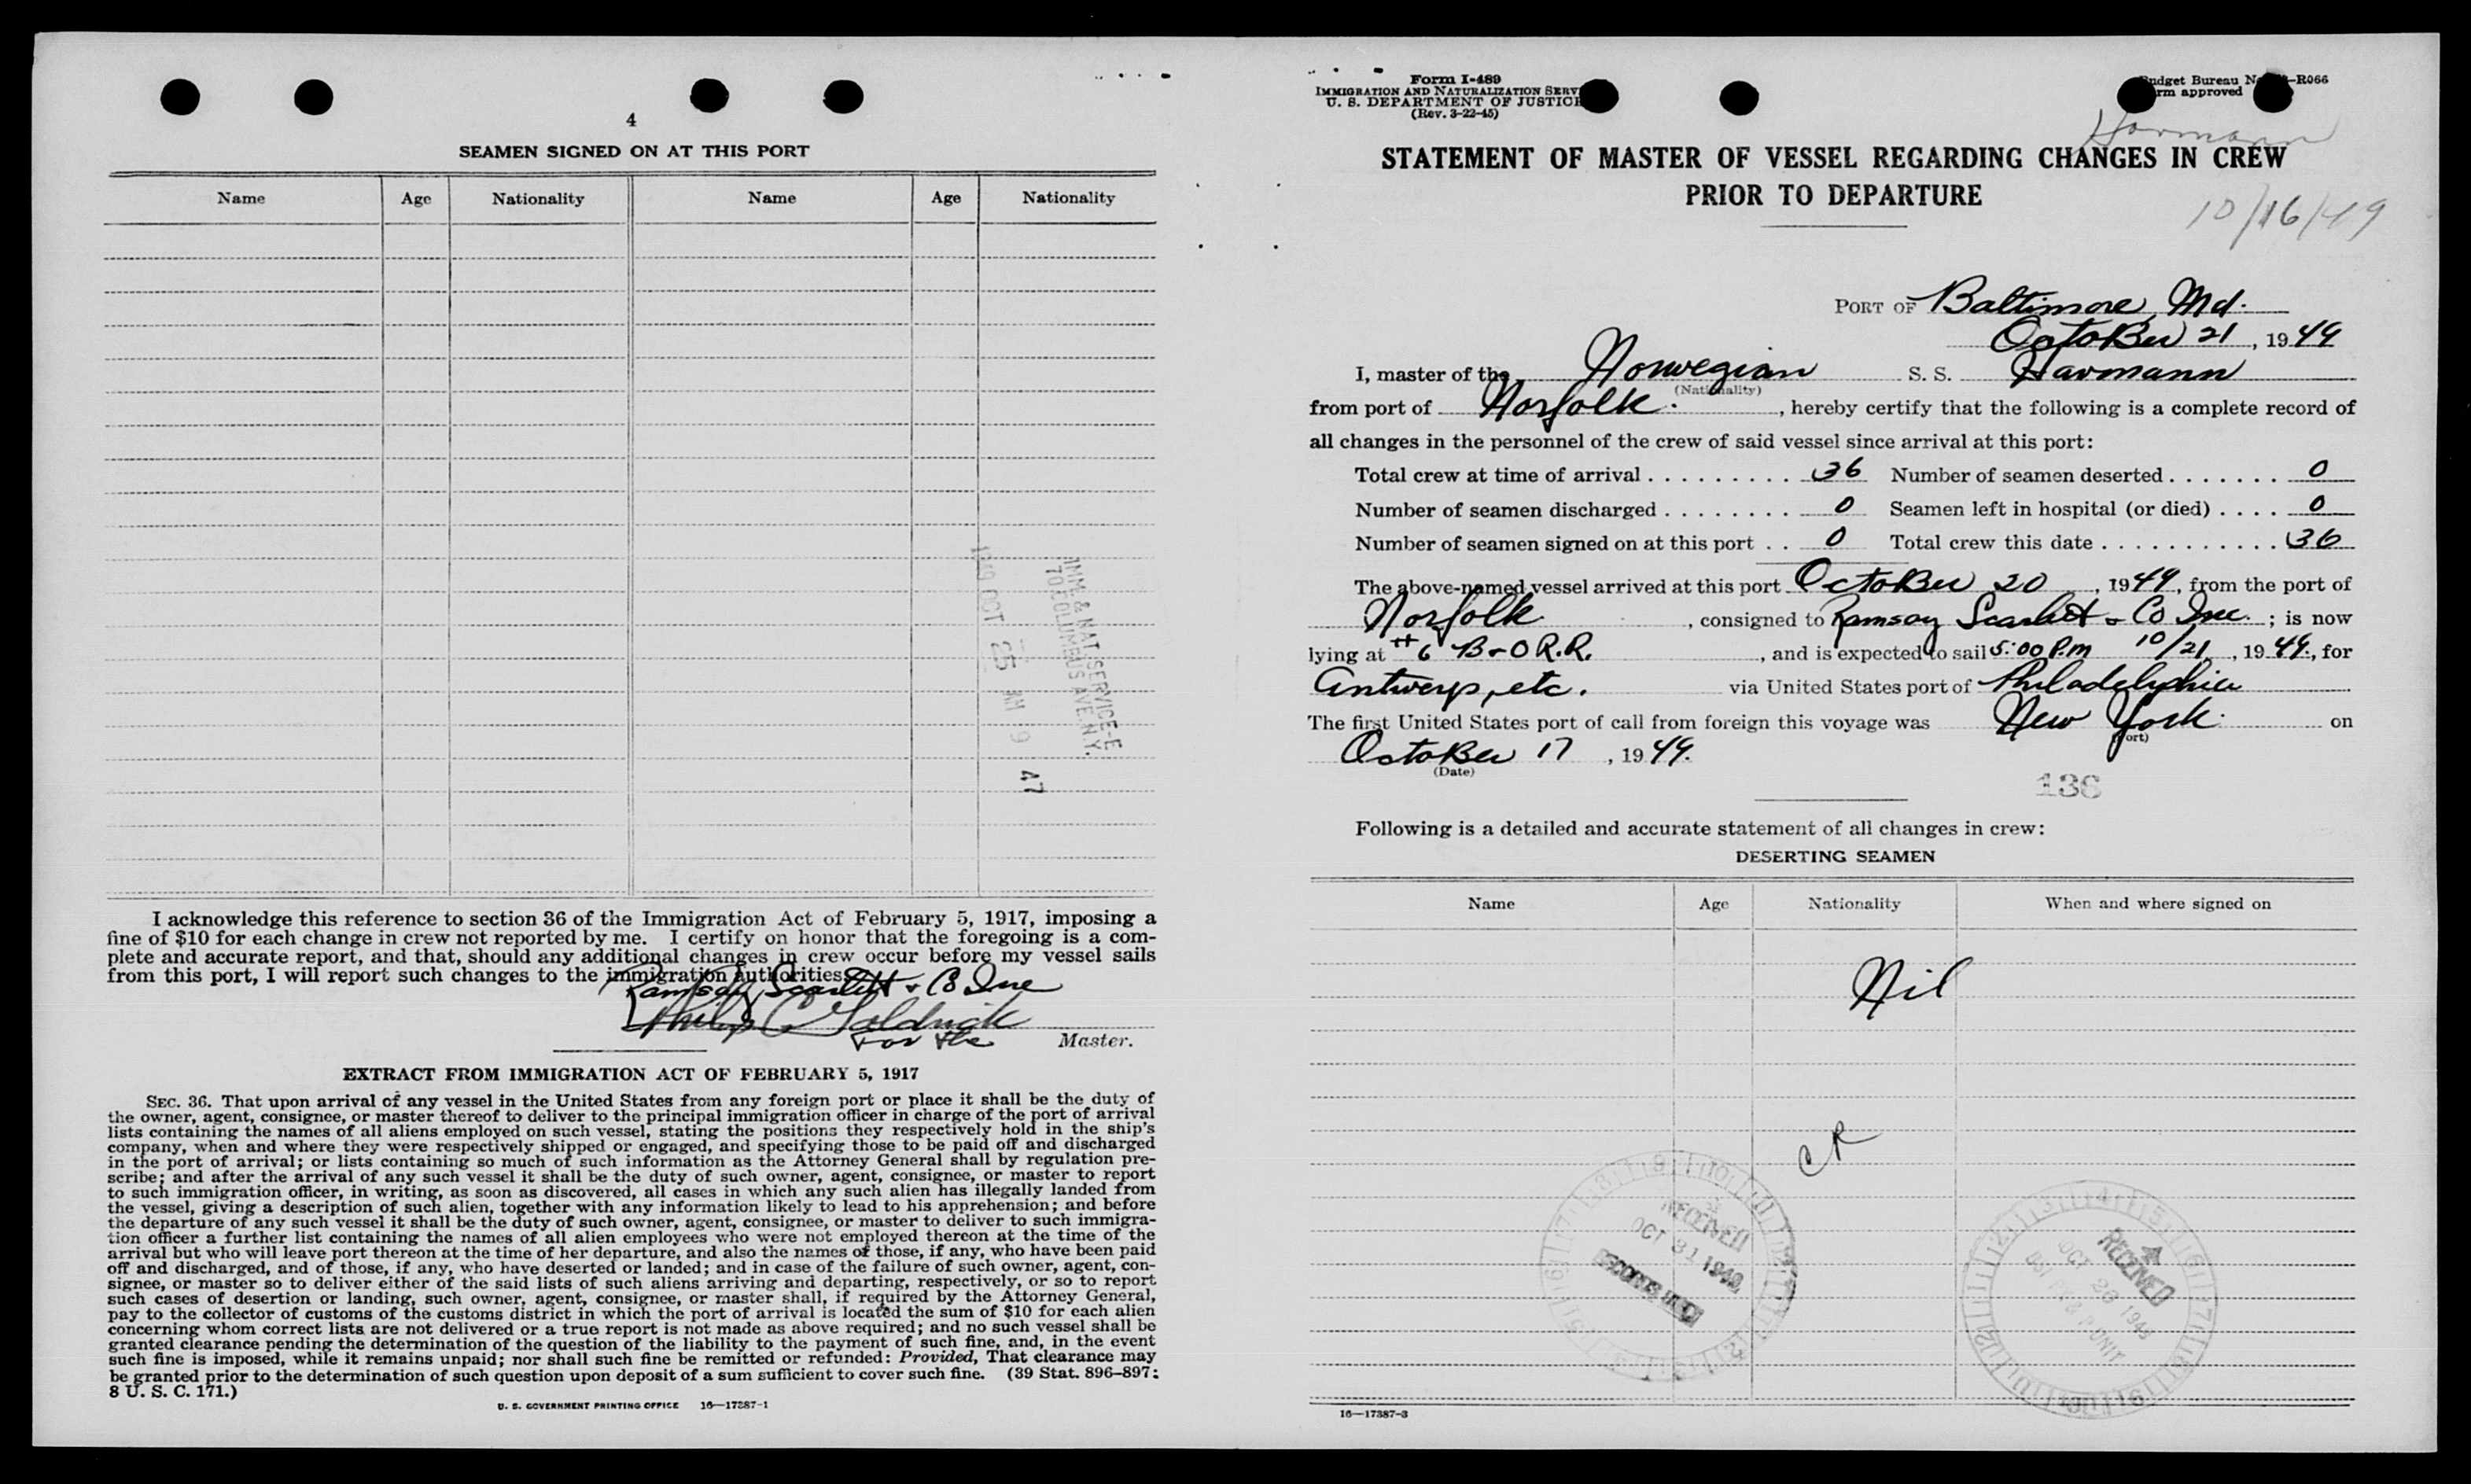 4
SEAMEN SIGNED ON AT THIS PORT
Name Age Nationality Name Age Nationality
IMM. & NAT. SERVICE-E
70 COLUMBUS AVE. N.Y.
1949 OCT 25 AM 9 47
I acknowledge this reference to section 36 of the Immigration Act of February 5, 1917, imposing a
fine of $10 for each change in crew not reported by me. I certify on honor that the foregoing is a com-
plete and accurate report, and that, should any additional changes in crew occur before my vessel sails
from this port, I will report such changes to the immigration authorities.
Ramsay Scarlett & Co Inc
Philip C Goldrick
For the Master.
EXTRACT FROM IMMIGRATION ACT OF FEBRUARY 5, 1917
SEC. 36. That upon arrival of any vessel in the United States from any foreign port or place it shall be the duty of
the owner, agent, consignee, or master thereof to deliver to the principal immigration officer in charge of the port of arrival
lists containing the names of all aliens employed on such vessel, stating the positions they respectively hold in the ship's
company, when and where they were respectively shipped or engaged, and specifying those to be paid off and discharged
in the port of arrival; or lists containing so much of such information as the Attorney General shall by regulation pre-
scribe; and after the arrival of any such vessel it shall be the duty of such owner, agent, consignee, or master to report
to such immigration officer, in writing, as soon as discovered, all cases in which any such alien has illegally landed from
the vessel, giving a description of such alien, together with any information likely to lead to his apprehension; and before
the departure of any such vessel it shall be the duty of such owner, agent, consignee, or master to deliver to such immigra-
tion officer a further list containing the names of all alien employees who were not employed thereon at the time of the
arrival but who will leave port thereon at the time of her departure, and also the names of those, if any, who have been paid
off and discharged, and of those, if any, who have deserted or landed; and in case of the failure of such owner, agent, con-
signee, or master so to deliver either of the said lists of such aliens arriving and departing, respectively, or so to report
such cases of desertion or landing, such owner, agent, consignee, or master shall, if required by the Attorney General,
pay to the collector of customs of the customs district in which the port of arrival is located the sum of $10 for each alien
concerning whom correct lists are not delivered or a true report is not made as above required; and no such vessel shall be
granted clearance pending the determination of the question of the liability to the payment of such fine, and, in the event
such fine is imposed, while it remains unpaid; nor shall such fine be remitted or refunded: Provided, That clearance may
be granted prior to the determination of such question upon deposit of a sum sufficient to cover such fine. (39 Stat. 896-897;
8 U. S. C. 171.)
U. S. GOVERNMENT PRINTING OFFICE 16—17387-1
Form I-489
IMMIGRATION AND NATURALIZATION SERV
U. S. DEPARTMENT OF JUSTICE
(Rev. 3-22-45)
Budget Bureau No. -R066
Form approved
Havmann
STATEMENT OF MASTER OF VESSEL REGARDING CHANGES IN CREW
PRIOR TO DEPARTURE
10/16/49
PORT OF Baltimore, Md.
October 21, 1949
I, master of the Norwegian S. S. Havmann
(Nationality)
from port of Norfolk, hereby certify that the following is a complete record of
all changes in the personnel of the crew of said vessel since arrival at this port:
Total crew at time of arrival 36 Number of seamen deserted 0
Number of seamen discharged 0 Seamen left in hospital (or died) 0
Number of seamen signed on at this port 0 Total crew this date 36
The above-named vessel arrived at this port October 20, 1949, from the port of
Norfolk, consigned to Ramsay Scarlett & Co Inc.; is now
lying at #6 B-O R.R., and is expected to sail 5:00 P.m 10/21, 1949, for
Antwerp, etc. via United States port of Philadelphia
The first United States port of call from foreign this voyage was New York on
(Port)
October 17, 1949.
(Date)
136
Following is a detailed and accurate statement of all changes in crew:
DESERTING SEAMEN
Name Age Nationality When and where signed on
Nil
CR
RECEIVED
OCT 31 1949
RECEIVED
OCT 28 1949
UNIT
16—17387-3